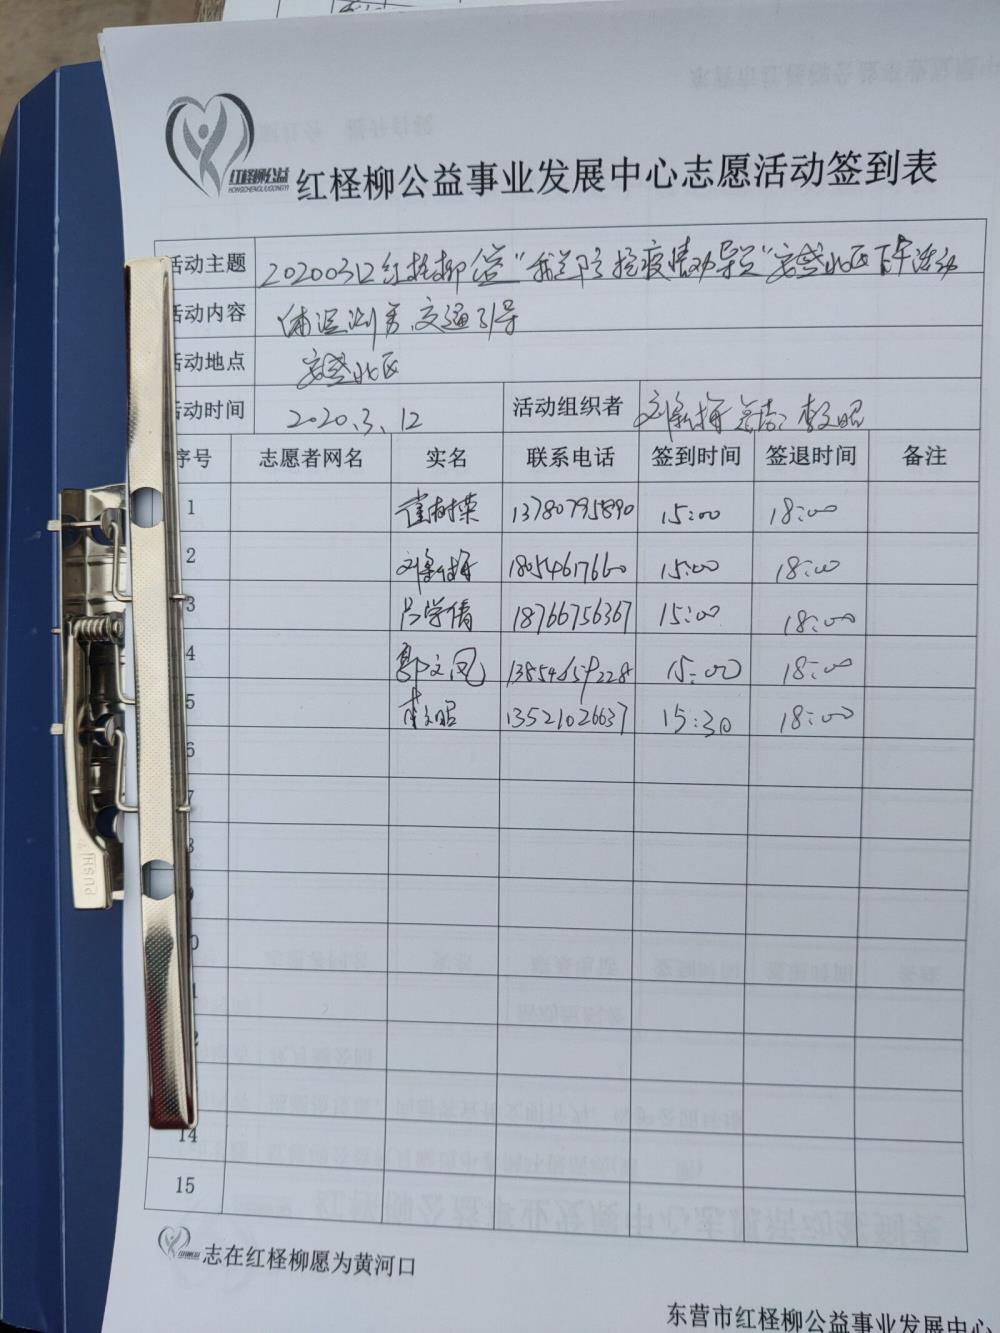 红柽柳公益
HONGCHENGLIUGONGYI
红柽柳公益事业发展中心志愿活动签到表
活动主题 20200312红柽柳公益"我是防控疫情劝导员"安盛北区下午活动
活动内容 体温测量、交通引导
活动地点 安盛北区
活动时间 2020.3.12 活动组织者 李文昭
序号 志愿者网名 实名 联系电话 签到时间 签退时间 备注
1 崔树荣 13780795890 15:00 18:00
2 18054617660 15:00 18:00
3 吕学倩 18766756367 15:00 18:00
4 郭文凤 13854659228 15:00 18:00
5 李文昭 13521026637 15:30 18:00
6
7
8
9
10
11
12
14
15
PUSH
志在红柽柳愿为黄河口
东营市红柽柳公益事业发展中心